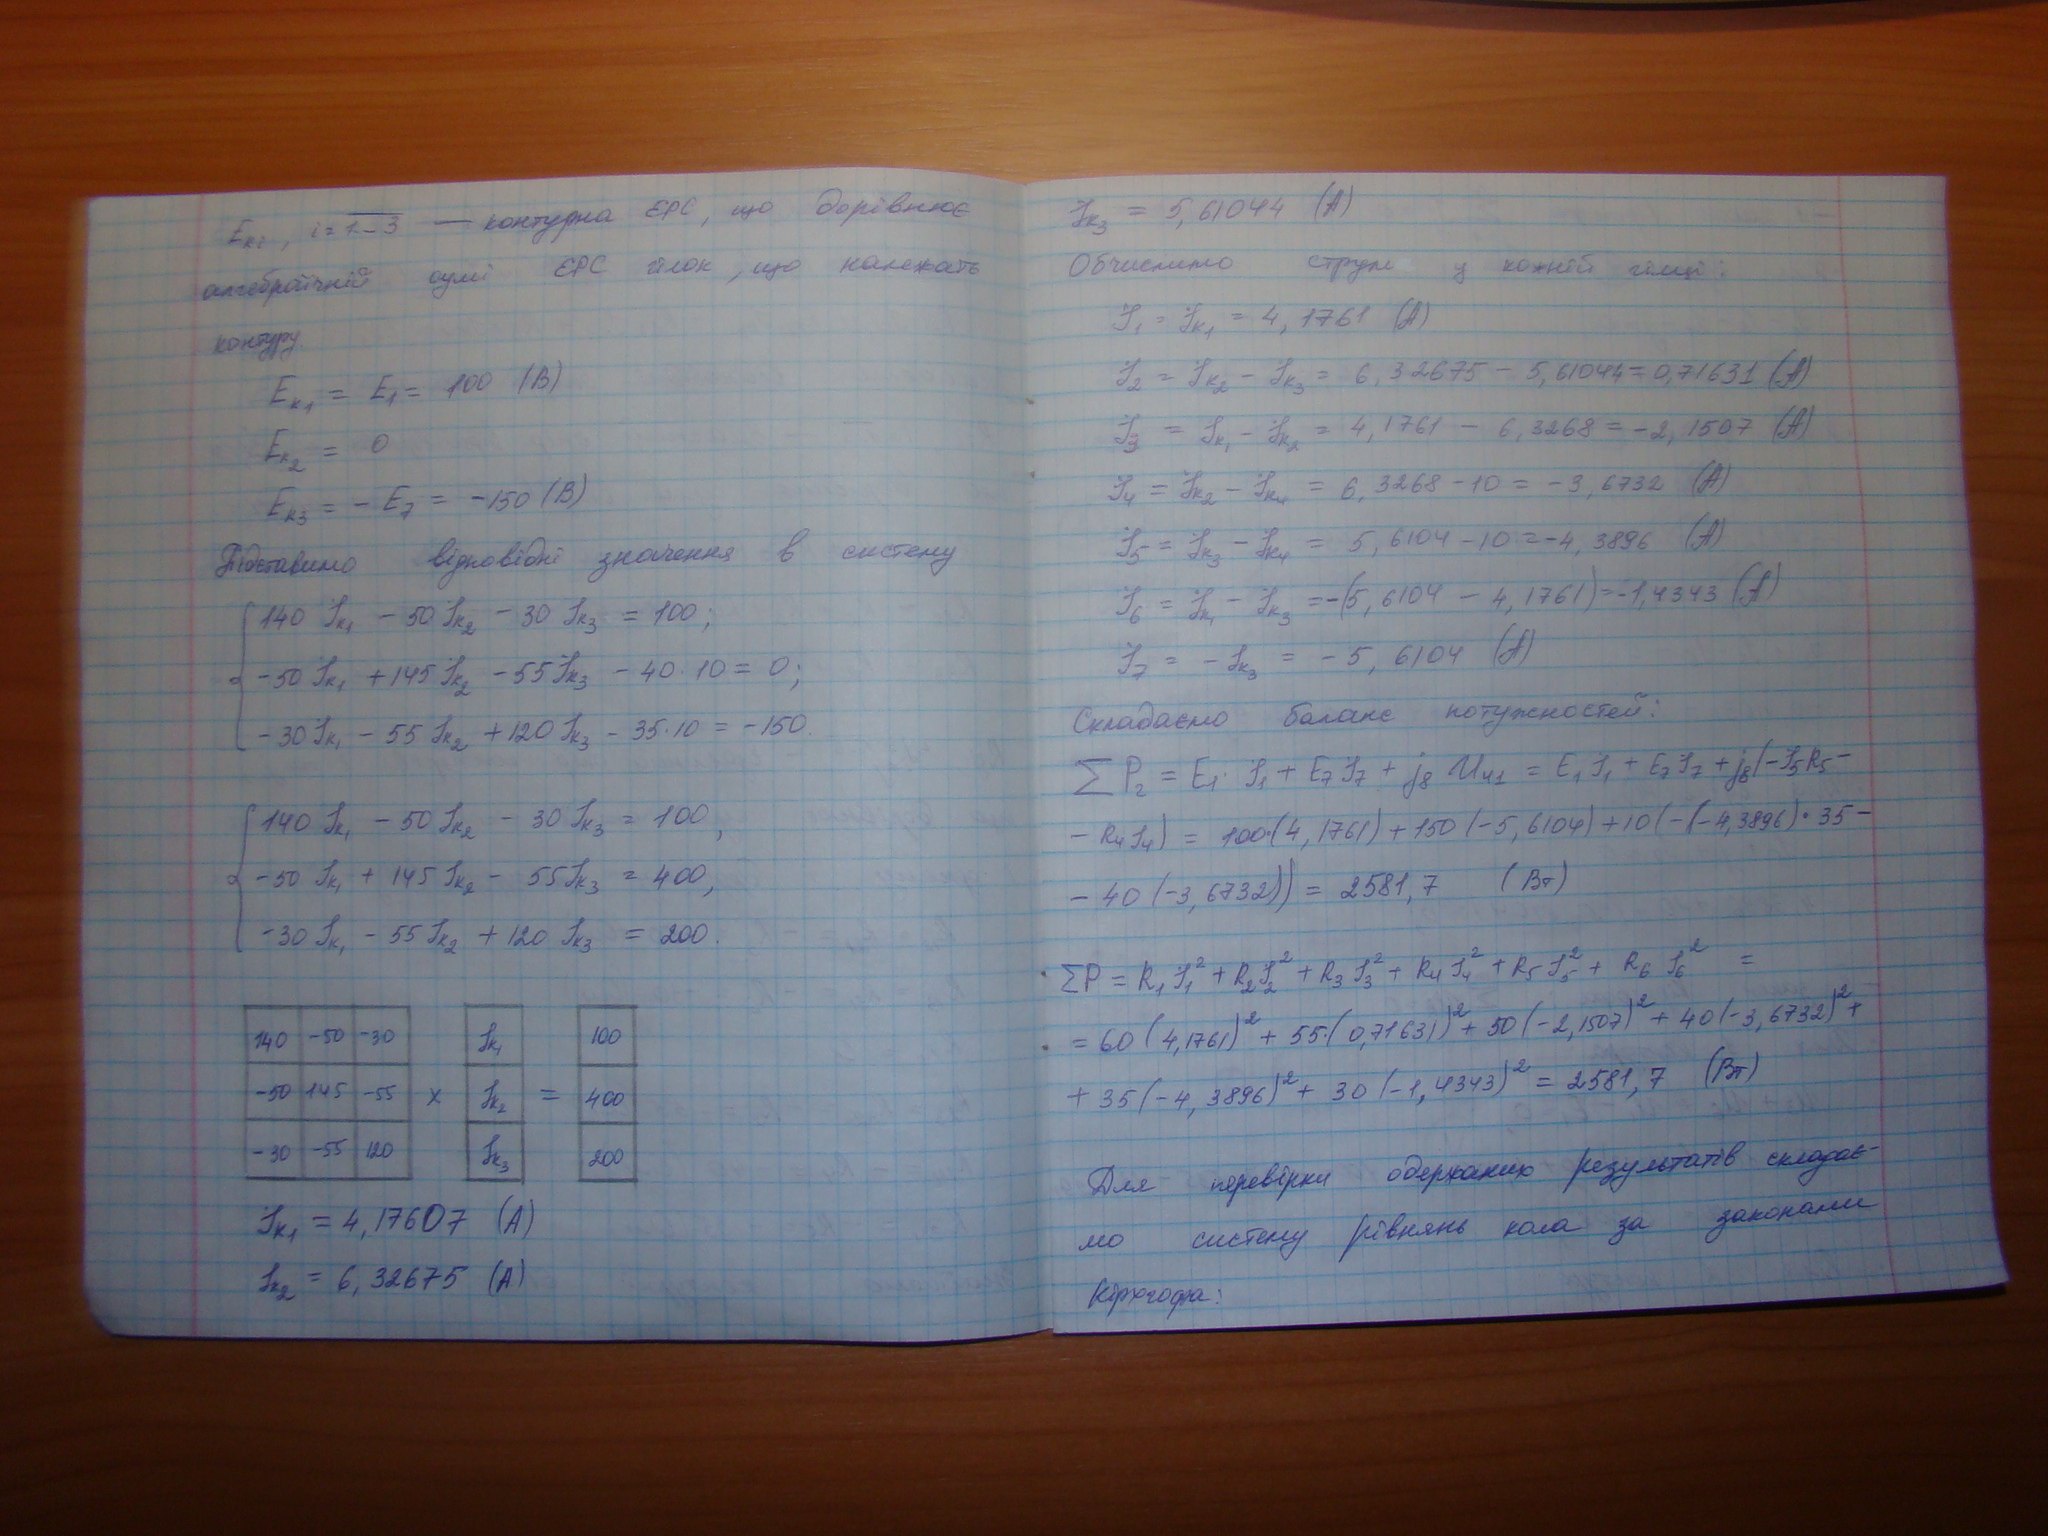 Eкi, i=1-3 — контурна ЄРС, що дорівнює
алгебраїчній сумі ЄРС гілок, що належать
контуру.
Eк1 = E1 = 100 (В)
Eк2 = 0
Eк3 = - E7 = -150 (В)
Підставимо відповідні значення в систему
140 Iк1 - 50 Iк2 - 30 Iк3 = 100;
-50 Iк1 + 145 Iк2 - 55 Iк3 - 40·10 = 0;
-30 Iк1 - 55 Iк2 + 120 Iк3 - 35·10 = -150.
140 Iк1 - 50 Iк2 - 30 Iк3 = 100,
-50 Iк1 + 145 Iк2 - 55 Iк3 = 400,
-30 Iк1 - 55 Iк2 + 120 Iк3 = 200.
140 -50 -30 Iк1 100
-50 145 -55 x Iк2 = 400
-30 -55 120 Iк3 200
Iк1 = 4,17607 (А)
Iк2 = 6,32675 (А)
Iк3 = 5,61044 (А)
Обчислимо струм у кожній гілці:
I1 = Iк1 = 4,1761 (А)
I2 = Iк2 - Iк3 = 6,32675 - 5,61044 = 0,71631 (А)
I3 = Iк1 - Iк2 = 4,1761 - 6,3268 = -2,1507 (А)
I4 = Iк2 - Iк4 = 6,3268 - 10 = -3,6732 (А)
I5 = Iк3 - Iк4 = 5,6104 - 10 = -4,3896 (А)
I6 = Iк1 - Iк3 = -(5,6104 - 4,1761) = -1,4343 (А)
I7 = - Iк3 = - 5,6104 (А)
Складаємо баланс потужностей:
∑ Pг = E1 · I1 + E7 I7 + j8 U41 = E1 I1 + E7 I7 + j8(-I5 R5 -
- R4 I4) = 100·(4,1761) + 150(-5,6104) + 10(-(-4,3896)·35 -
- 40 (-3,6732)) = 2581,7 (Вт)
∑P = R1 I1² + R2 I2² + R3 I3² + R4 I4² + R5 I5² + R6 I6² =
= 60 (4,1761)² + 55·(0,71631)² + 50(-2,1507)² + 40(-3,6732)² +
+ 35(-4,3896)² + 30(-1,4343)² = 2581,7 (Вт)
Для перевірки одержаних результатів складає-
мо систему рівнянь кола за законами
Кірхгофа: